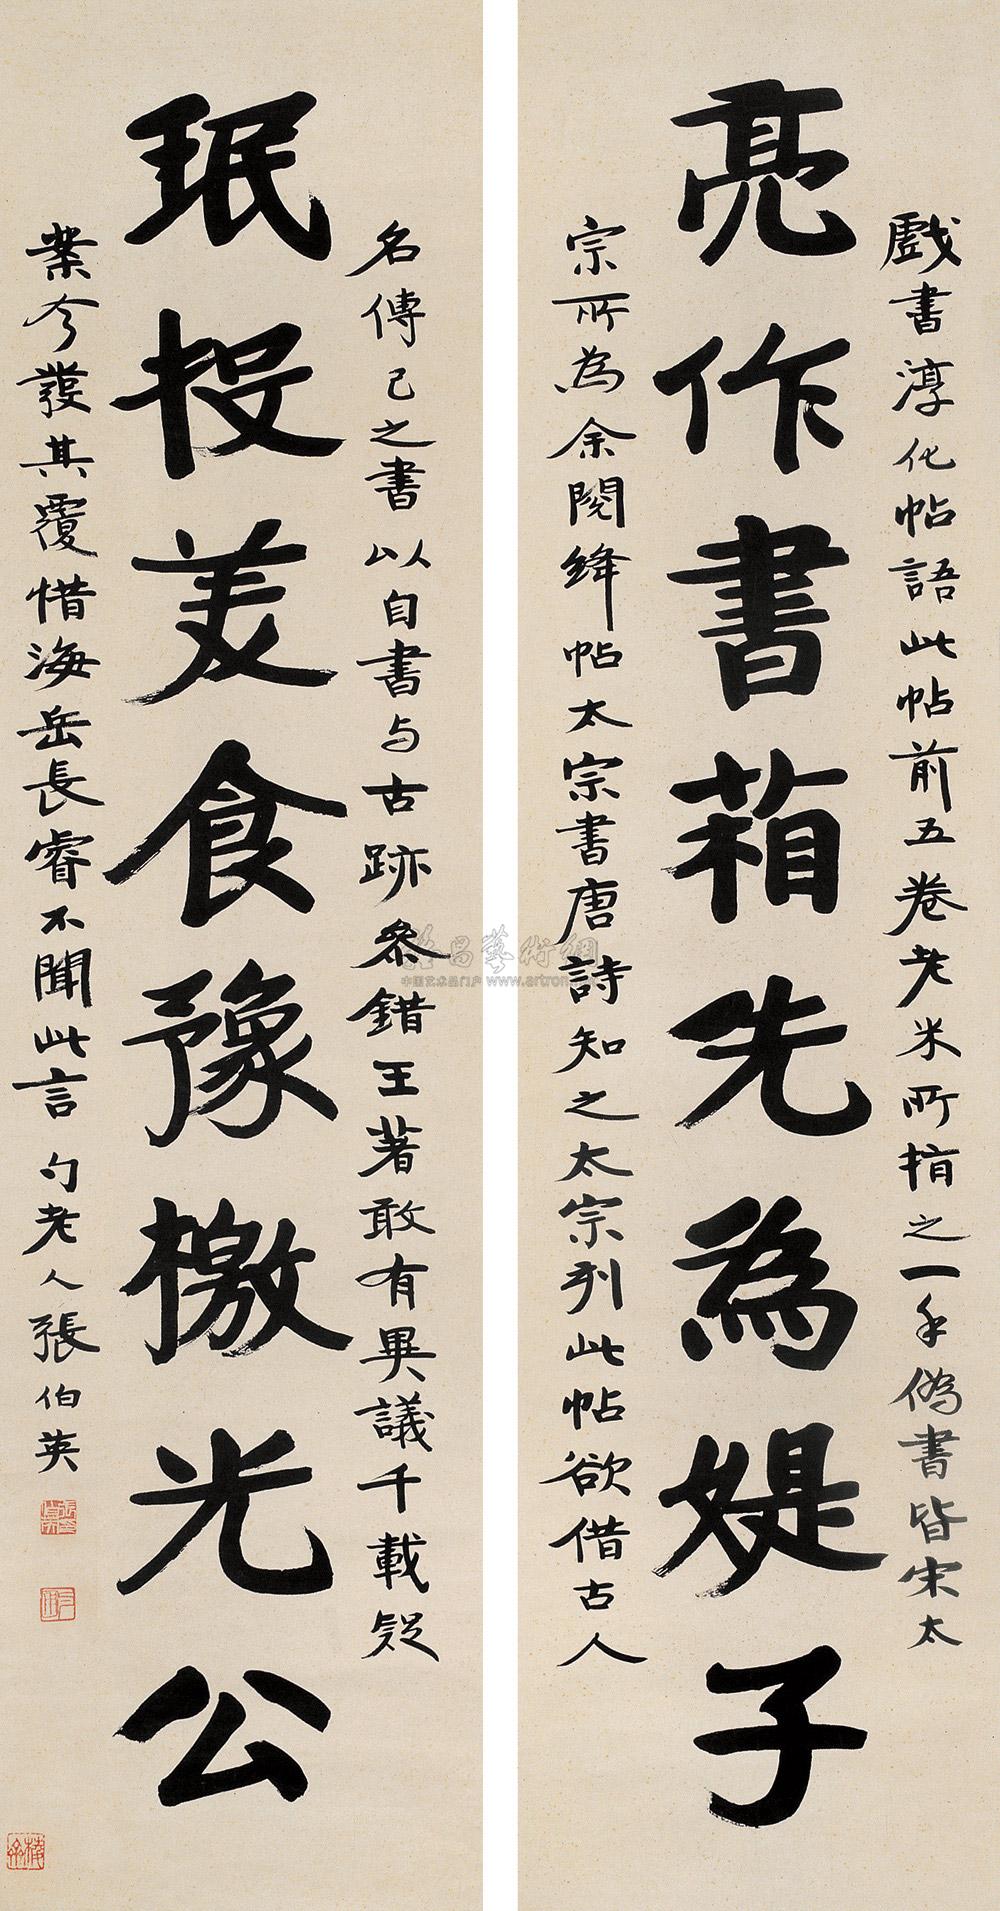 亮作書箱先為媞子
戲書淳化帖語此帖前五卷老米所指之一手偽書皆宋太
宗所為余閱絳帖太宗書唐詩知之太宗列此帖欲借古人
名傳己之書以自書与古跡參錯王著敢有異議千載疑
業今發其覆惜海岳長睿不聞此言勺老人張伯英
珉投美食豫檄光公
中国艺术品门户 www.artron.net